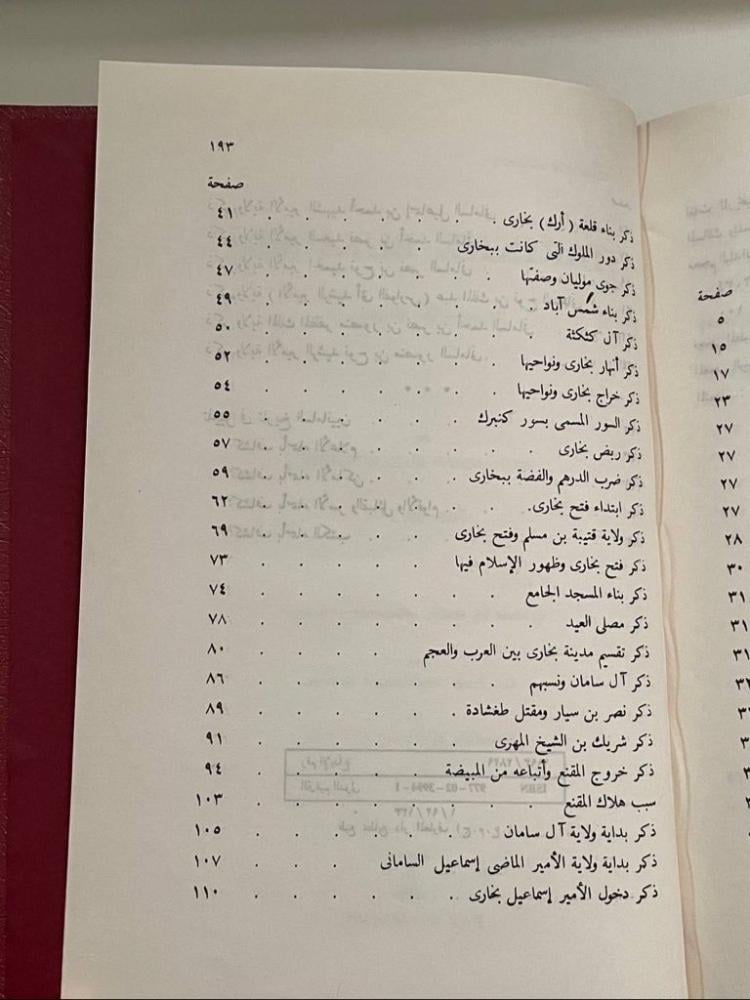 ١٩٣
صفحة
ذكر بناء قلعة ( أرك ) بخارى . . . . . . ٤١
ذكر دور الملوك التى كانت ببخارى . . . . . ٤٤
ذكر جوى موليان وصفتها . . . . . . ٤٧
ذكر بناء شمس آباد . . . . . . ٤٩
ذكر آل كثكثة . . . . . . ٥٠
ذكر أنهار بخارى ونواحيها . . . . . . ٥٢
ذكر خراج بخارى ونواحيها . . . . . . ٥٤
ذكر السور المسمى بسور كنبرك . . . . . ٥٥
ذكر ربض بخارى . . . . . . ٥٧
ذكر ضرب الدرهم والفضة ببخارى . . . . . ٥٩
ذكر ابتداء فتح بخارى . . . . . . ٦٢
ذكر ولاية قتيبة بن مسلم وفتح بخارى . . . . ٦٩
ذكر فتح بخارى وظهور الإسلام فيها . . . . ٧٣
ذكر بناء المسجد الجامع . . . . . . ٧٤
ذكر مصلى العيد . . . . . . ٧٨
ذكر تقسيم مدينة بخارى بين العرب والعجم . . . . ٨٠
ذكر آل سامان ونسبهم . . . . . ٨٦
ذكر نصر بن سيار ومقتل طغشادة . . . . . ٨٩
ذكر شريك بن الشيخ المهرى . . . . . ٩١
ذكر خروج المقنع وأتباعه من المبيضة . . . . ٩٤
سبب هلاك المقنع . . . . . . ١٠٣
ذكر بداية ولاية آل سامان . . . . . ١٠٥
ذكر بداية ولاية الأمير الماضى إسماعيل السامانى . . . ١٠٧
ذكر دخول الأمير إسماعيل بخارى . . . . . ١١٠
صفحة
٥
١٥
١٧
٢٣
٢٧
٢٧
٢٧
٢٧
٢٨
٣٠
٣١
٣١